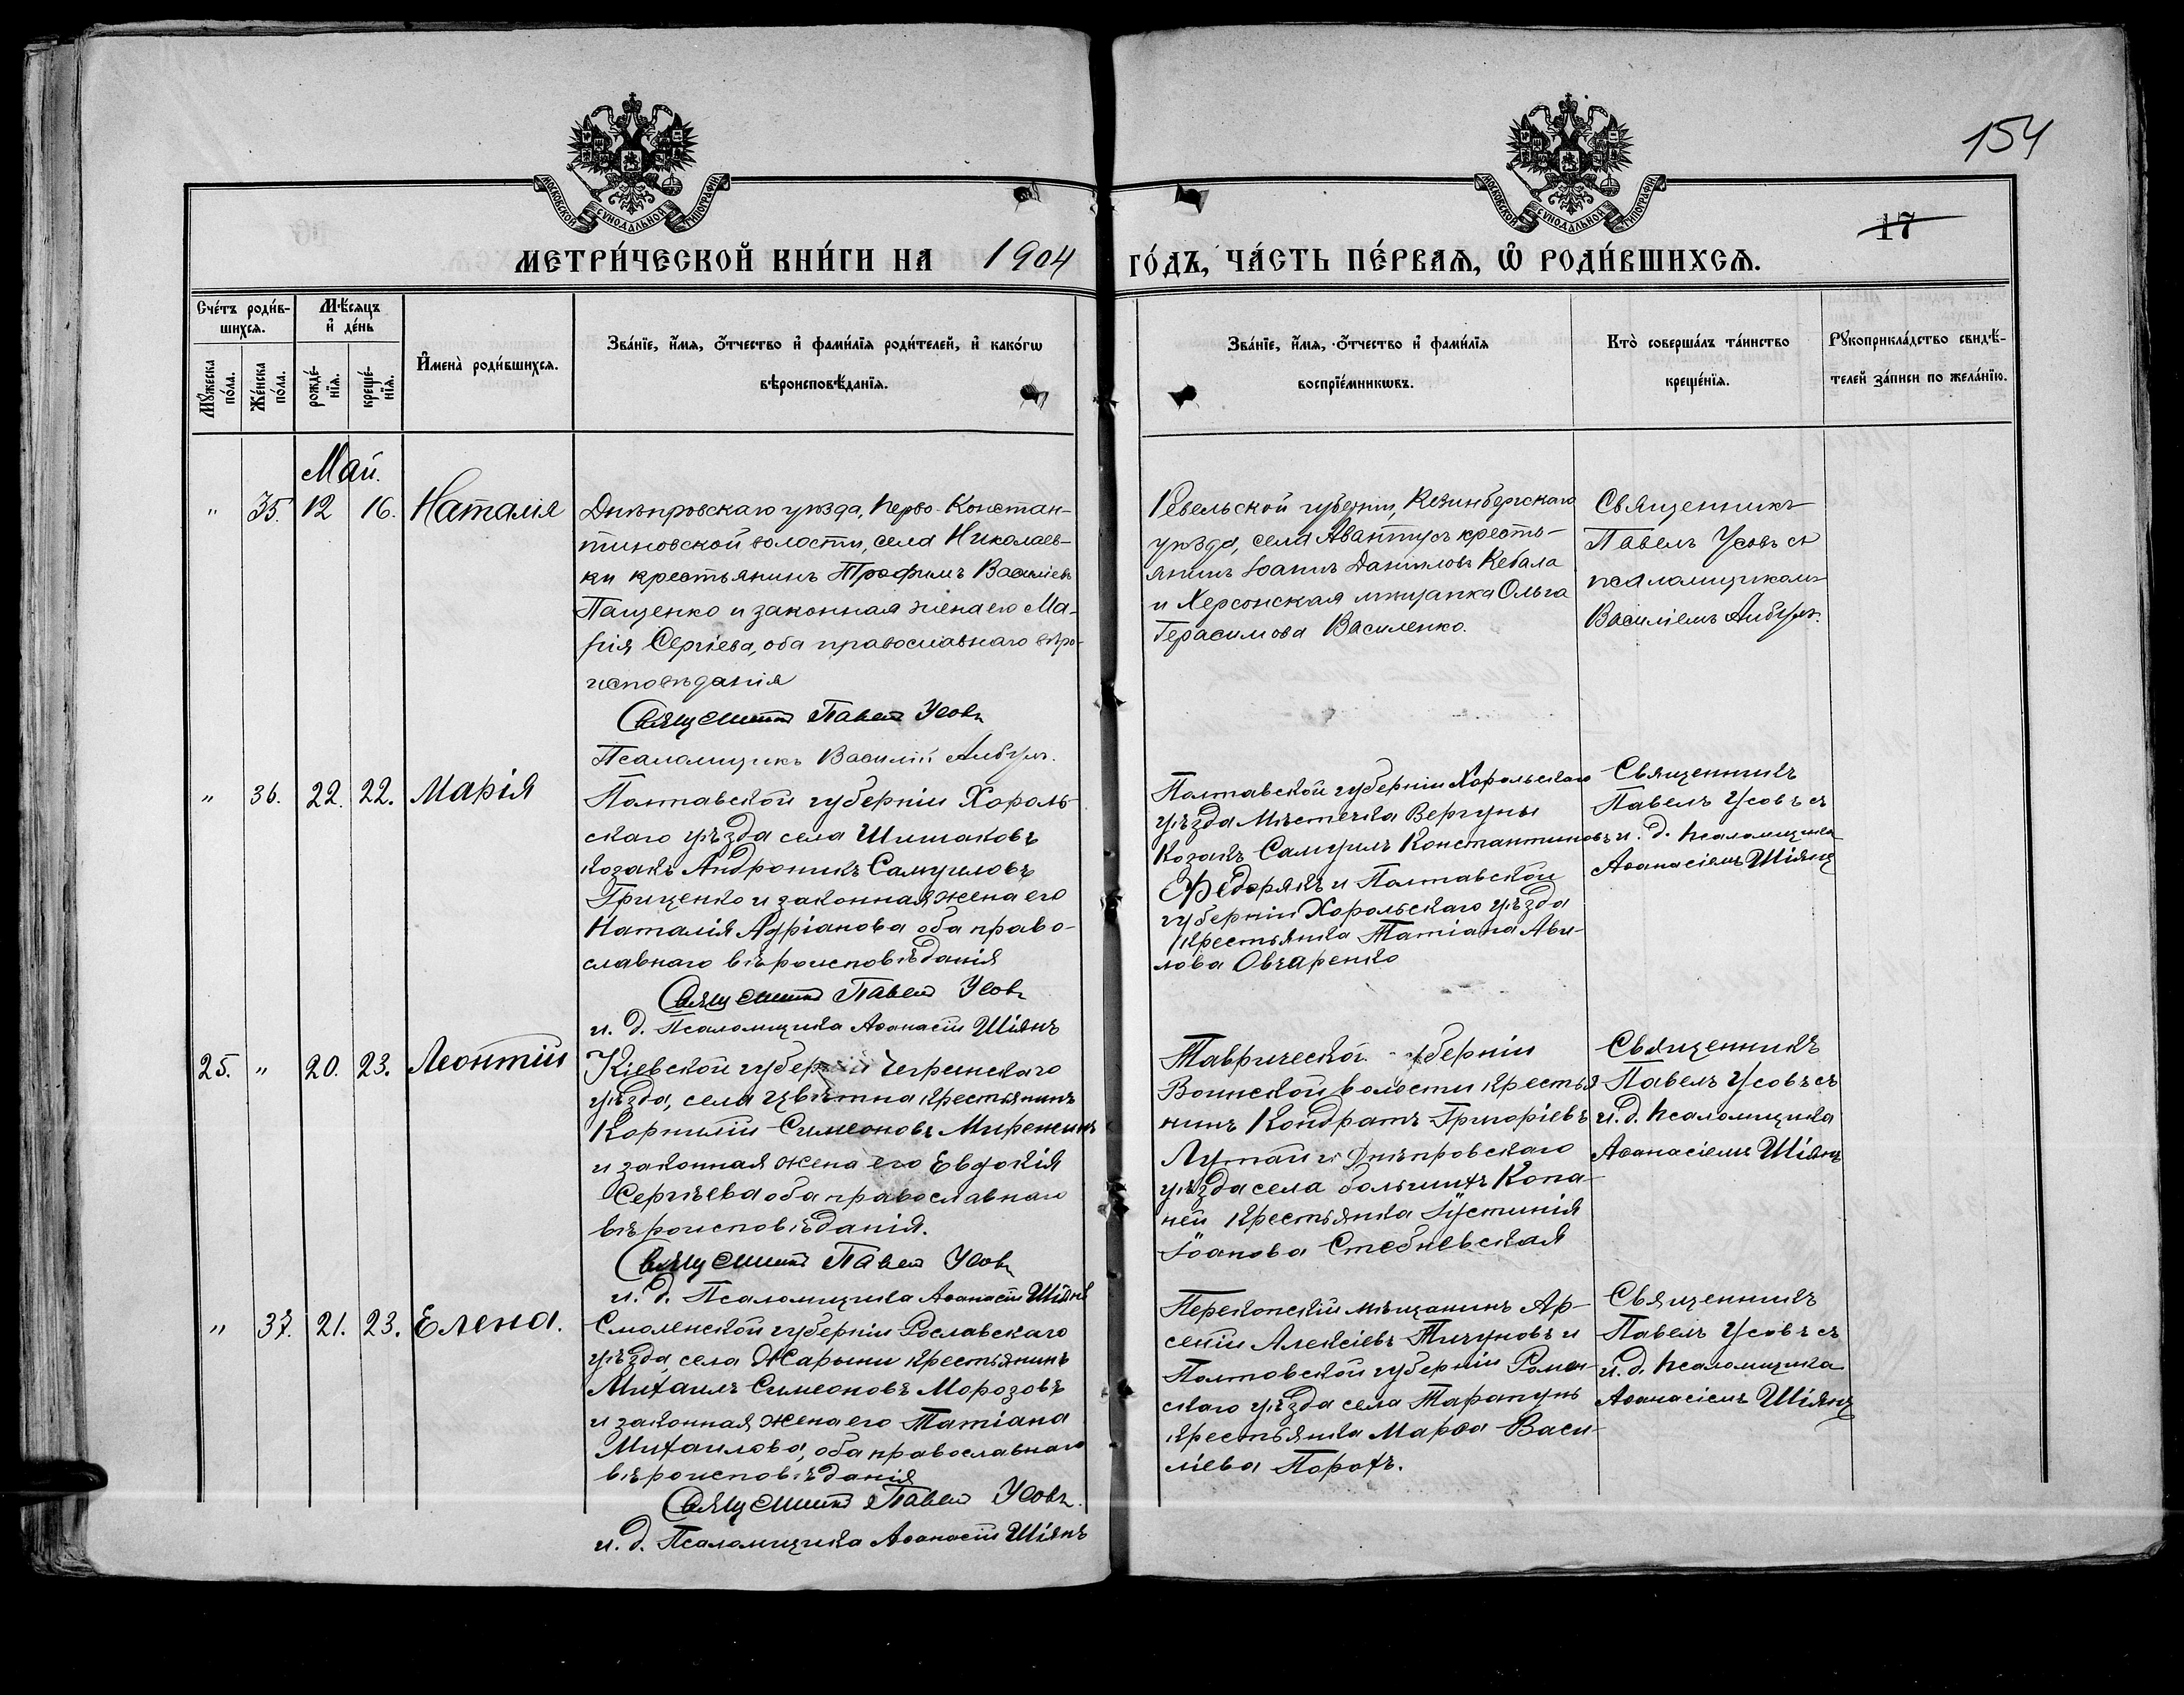 154
МОСКОВСКОЙ СѴНОДАЛЬНОЙ ТИПОГРАФІИ
МОСКОВСКОЙ СѴНОДАЛЬНОЙ ТИПОГРАФІИ
17
МЕТРИ́ЧЕСКОЙ КНИ́ГИ НА 1904 ГО́ДЪ, ЧА́СТЬ ПЕ́РВАѦ, Ѽ РОДИ́ВШИХСѦ.
Сче́тъ роди́в-
шихсѧ.
Мꙋ́жеска
по́ла.
Же́нска
по́ла.
Мѣ́сѧцъ
и҆ де́нь
рожде́-
нїѧ.
креще́-
нїѧ.
И҆мена̀ роди́вшихсѧ.
Зва́нїе, и҆́мѧ, ѻ҆́тчество и҆ фами́лїѧ роди́телей, и҆ како́гѡ
вѣроисповѣ́данїѧ.
Зва́нїе, и҆́мѧ, ѻ҆́тчество и҆ фами́лїѧ
воспрїе́мникѡвъ.
Кто̀ соверша́лъ та́инство
креще́нїѧ.
Рꙋкоприкла́дство свидѣ́-
телей за́писи по жела́нїю.
Май.
" 35. 12 16. Наталія
Днѣпровскаго уѣзда, Перво-Констан-
тиновской волости, села Николаев-
ки крестьянинъ Трофимъ Василіевъ
Пащенко и законная жена его Ма-
рія Сергіева, оба православнаго вѣро-
исповѣданія
Священникъ Павелъ Усовъ
Псаломщикъ Василій
Ревельской губерніи, Везинбергскаго
уѣзда, села Авантусъ кресть-
янинъ Іоаннъ Даниловъ Кебала
и Херсонская мѣщанка Ольга
Герасимова Василенко.
Священникъ
Павелъ Усовъ съ
псаломщикомъ
Василіемъ
" 36. 22. 22. Марія
Полтавской губерніи Хороль-
скаго уѣзда села Шишаковъ
козакъ Андроникъ Самуиловъ
Гриценко и законная жена его
Наталія Адріанова оба право-
славнаго вѣроисповѣданія
Священникъ Павелъ Усовъ
и. д. Псаломщика Аѳанасій Шіянъ
Полтавской губерніи Хорольскаго
уѣзда Мѣстечка Вергуны
Козакъ Самуилъ Константиновъ
Федорякъ и Полтавской
губерніи Хорольскаго уѣзда
крестьянка Татіана Ави-
лова Овчаренко
Священникъ
Павелъ Усовъ съ
и. д. псаломщика
Аѳанасіемъ Шіянъ
25. " 20. 23. Леонтій
Кіевской губерніи Чегринскаго
уѣзда, села Цвѣтна крестьянинъ
Корнилій Симеоновъ
и законная жена его Евдокія
Сергѣева оба православнаго
вѣроисповѣданія.
Священникъ Павелъ Усовъ
и. д. Псаломщика Аѳанасій Шіянъ
Таврической губерніи
Воинской волости крестья
нинъ Кондратъ Григоріевъ
Лутай и Днѣпровскаго
уѣзда села большихъ Копа-
ней крестьянка Іустинія
Іоанова Стебневская
Священникъ
Павелъ Усовъ съ
и. д. псаломщика
Аѳанасіемъ Шіянъ
" 37. 21. 23. Елена.
Смоленской губерніи Рославскаго
уѣзда, села Жарыни крестьянинъ
Михаилъ Симеоновъ Морозовъ
и законная жена его Татіана
Михаилова, оба православнаго
вѣроисповѣданія
Священникъ Павелъ Усовъ.
и. д. Псаломщика Аѳанасій Шіянъ
Перекопскій мѣщанинъ Ар-
сеній Алексіевъ Тичуновъ и
Полтовской губерніи Ромен-
скаго уѣзда села Тарапунь
крестьянка Марѳа Васи-
ліева Порохъ.
Священникъ
Павелъ Усовъ съ
и. д. псаломщика
Аѳанасіемъ Шіянъ